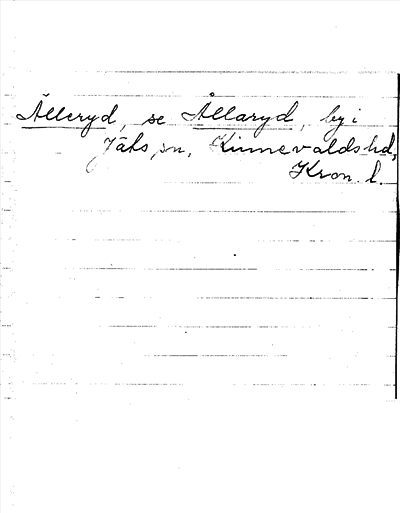 Älleryd, se Ållaryd, by i
Jäts sn, Kinnevalds hd,
Kron. l.